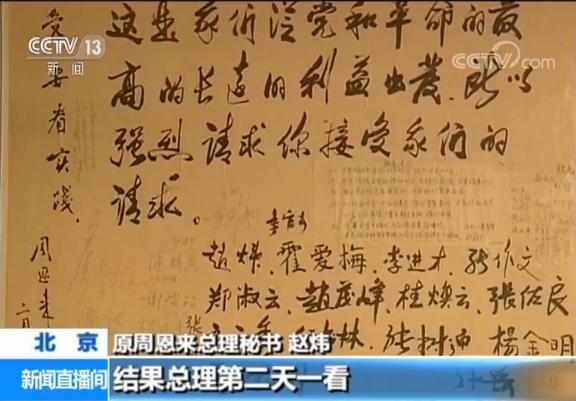 CCTV 13
新闻
CCTV.com
这是我们从党和革命的最
高的长远的利益出发,所以
强烈请求你接受我们的
请求。
赵炜、霍爱梅、李进才、张作文
郑淑云、赵茂峰、桂焕云、張佐良
张树迎、楊金明
要看实践。
周恩来
北京
原周恩来总理秘书 赵炜
新闻直播间
结果总理第二天一看